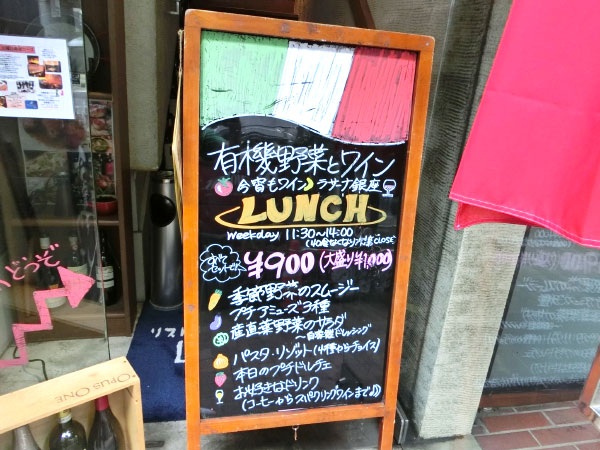 有機野菜とワイン
今宵もワイン ラザーナ銀座
LUNCH
Weekday 11:30~14:00
(40食なくなり次第CLOSE)
¥900 (大盛り¥1,000)
季節野菜のスムージー
プチアミューズ3種
産直葉野菜のサラダ
~自家製ドレッシング
パスタ・リゾット(4種からチョイス)
本日のプチドルチェ
お好きなドリンク
(コーヒーからスパークリングワインまで♪)
どうぞ
リスト
OPUS ONE